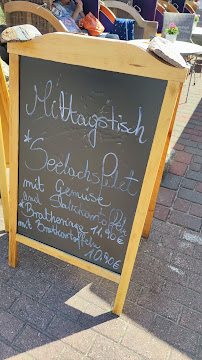 Mittagstisch
* Seelachsfilet
mit Gemüse
und Salzkartoffeln
11,90 €
* Bratheringe
mit Bratkartoffeln
10,90 €